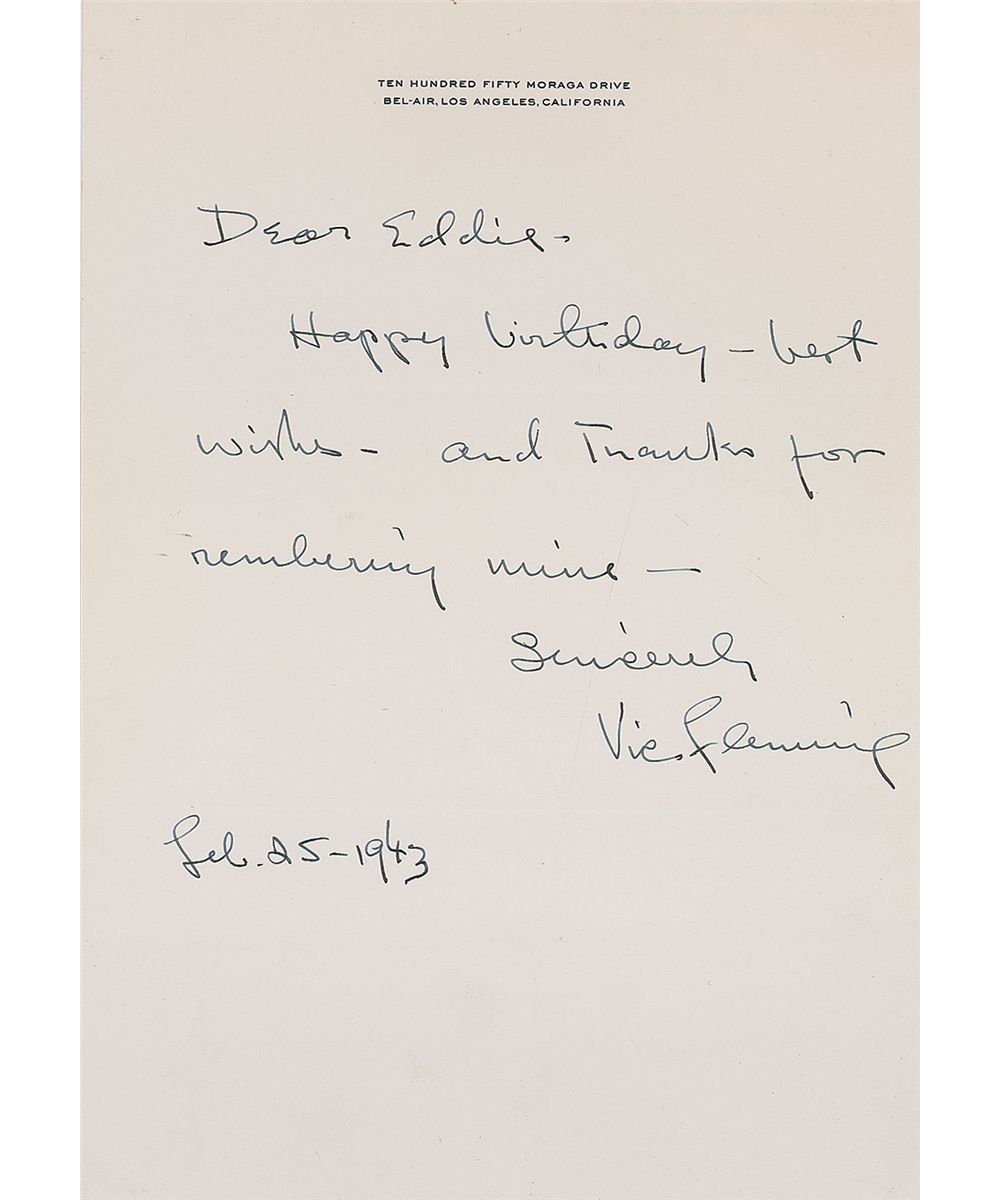 TEN HUNDRED FIFTY MORAGA DRIVE
BEL-AIR, LOS ANGELES, CALIFORNIA
Dear Eddie-
Happy birthday - best
wishes - and Thanks for
rembering mine -
Sincerely
Vic. Fleming
Feb. 25-1943